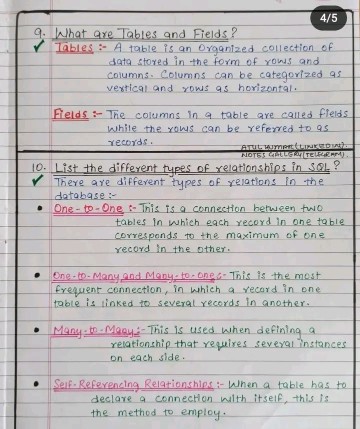 4/5
9. What are Tables and Fields?
Tables :- A table is an organized collection of
data stored in the form of rows and
columns. Columns can be categorized as
vertical and rows as horizontal.
Fields :- The columns in a table are called fields
while the rows can be referred to as
records.
ATUL KUMAR (LINKEDIN).
NOTES GALLERY (TELEGRAM).
10. List the different types of relationships in SQL?
There are different types of relations in the
database :-
One-to-One :- This is a connection between two
tables in which each record in one table
corresponds to the maximum of one
record in the other.
One-to-Many and Many-to-One :- This is the most
frequent connection, in which a record in one
table is linked to several records in another.
Many-to-Many :- This is used when defining a
relationship that requires several instances
on each side.
Self-Referencing Relationships :- When a table has to
declare a connection with itself, this is
the method to employ.